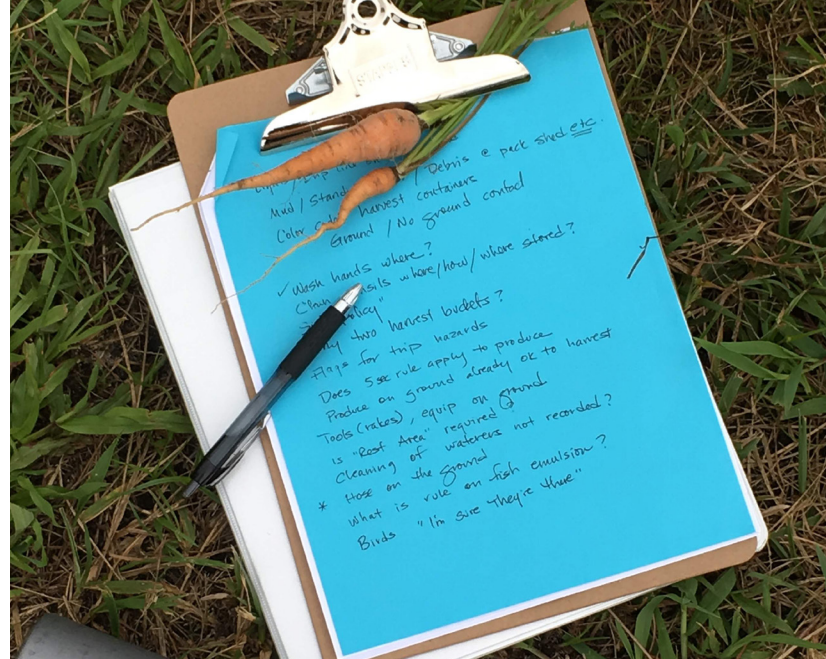 Debris @ pack shed etc.
Mud / Stand
Color harvest containers
Ground / No ground contact
✓ Wash hands where?
Clean where/how/where stored?
Policy"
two harvest buckets?
Flags for trip hazards
Does 5 sec rule apply to produce
Produce on ground already ok to harvest
Tools (rakes), equip on ground
is "Rest Area" required?
Cleaning of waterers not recorded?
* Hose on the ground
what is rule on fish emulsion?
Birds "I'm sure they're there"